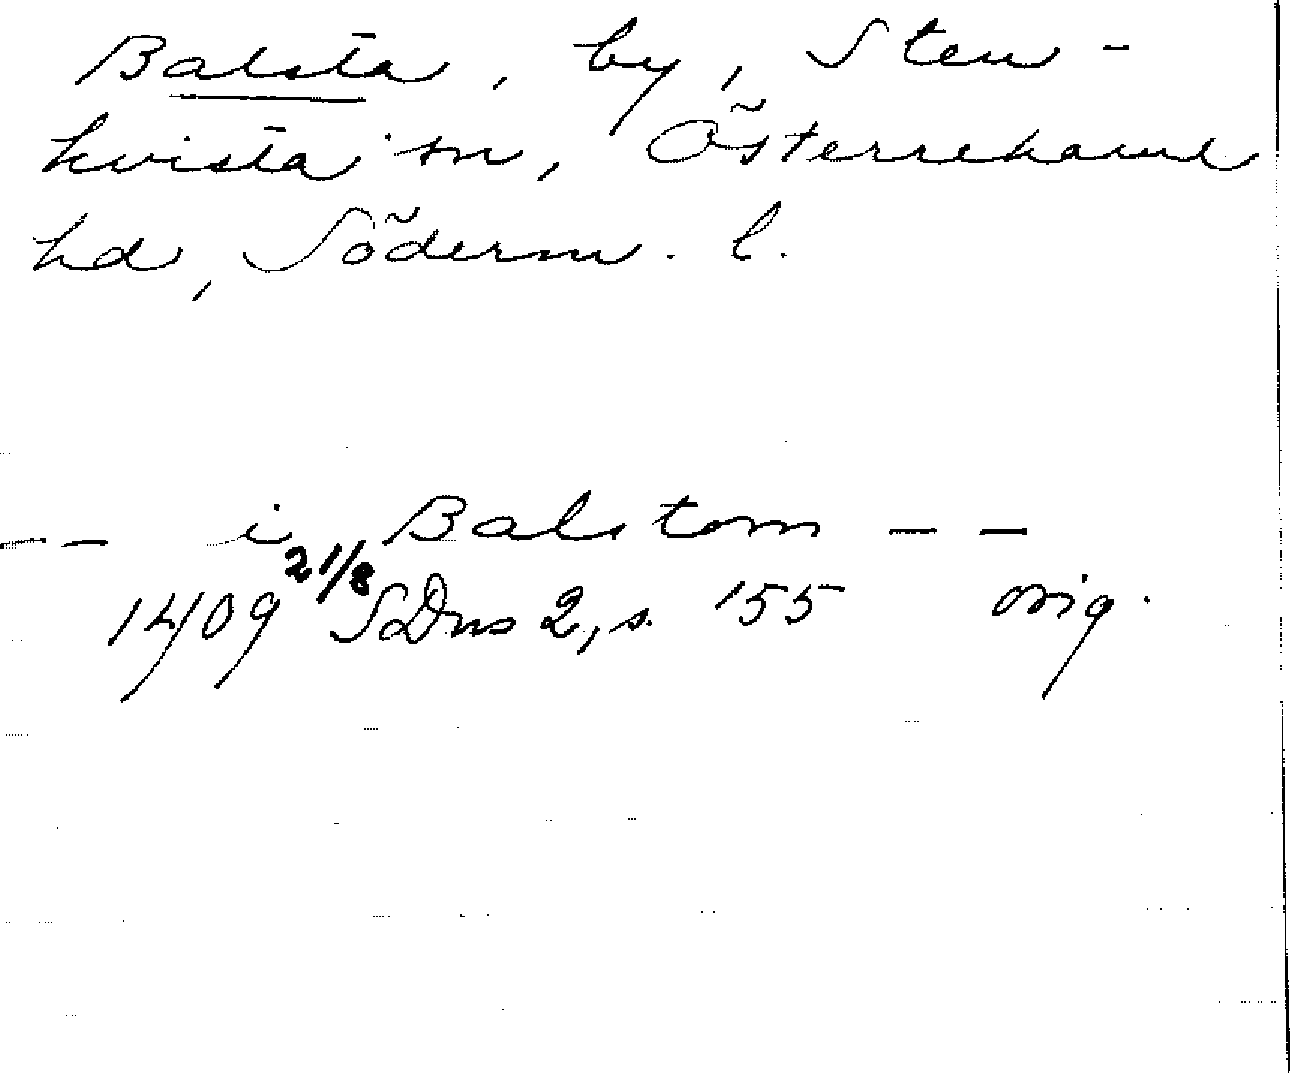 Balsta, by, Sten-
kvista sn, Österrekarne
hd, Söderm. l.
-- i Balstom --
1409 21/8 SDns 2, s. 155 orig.